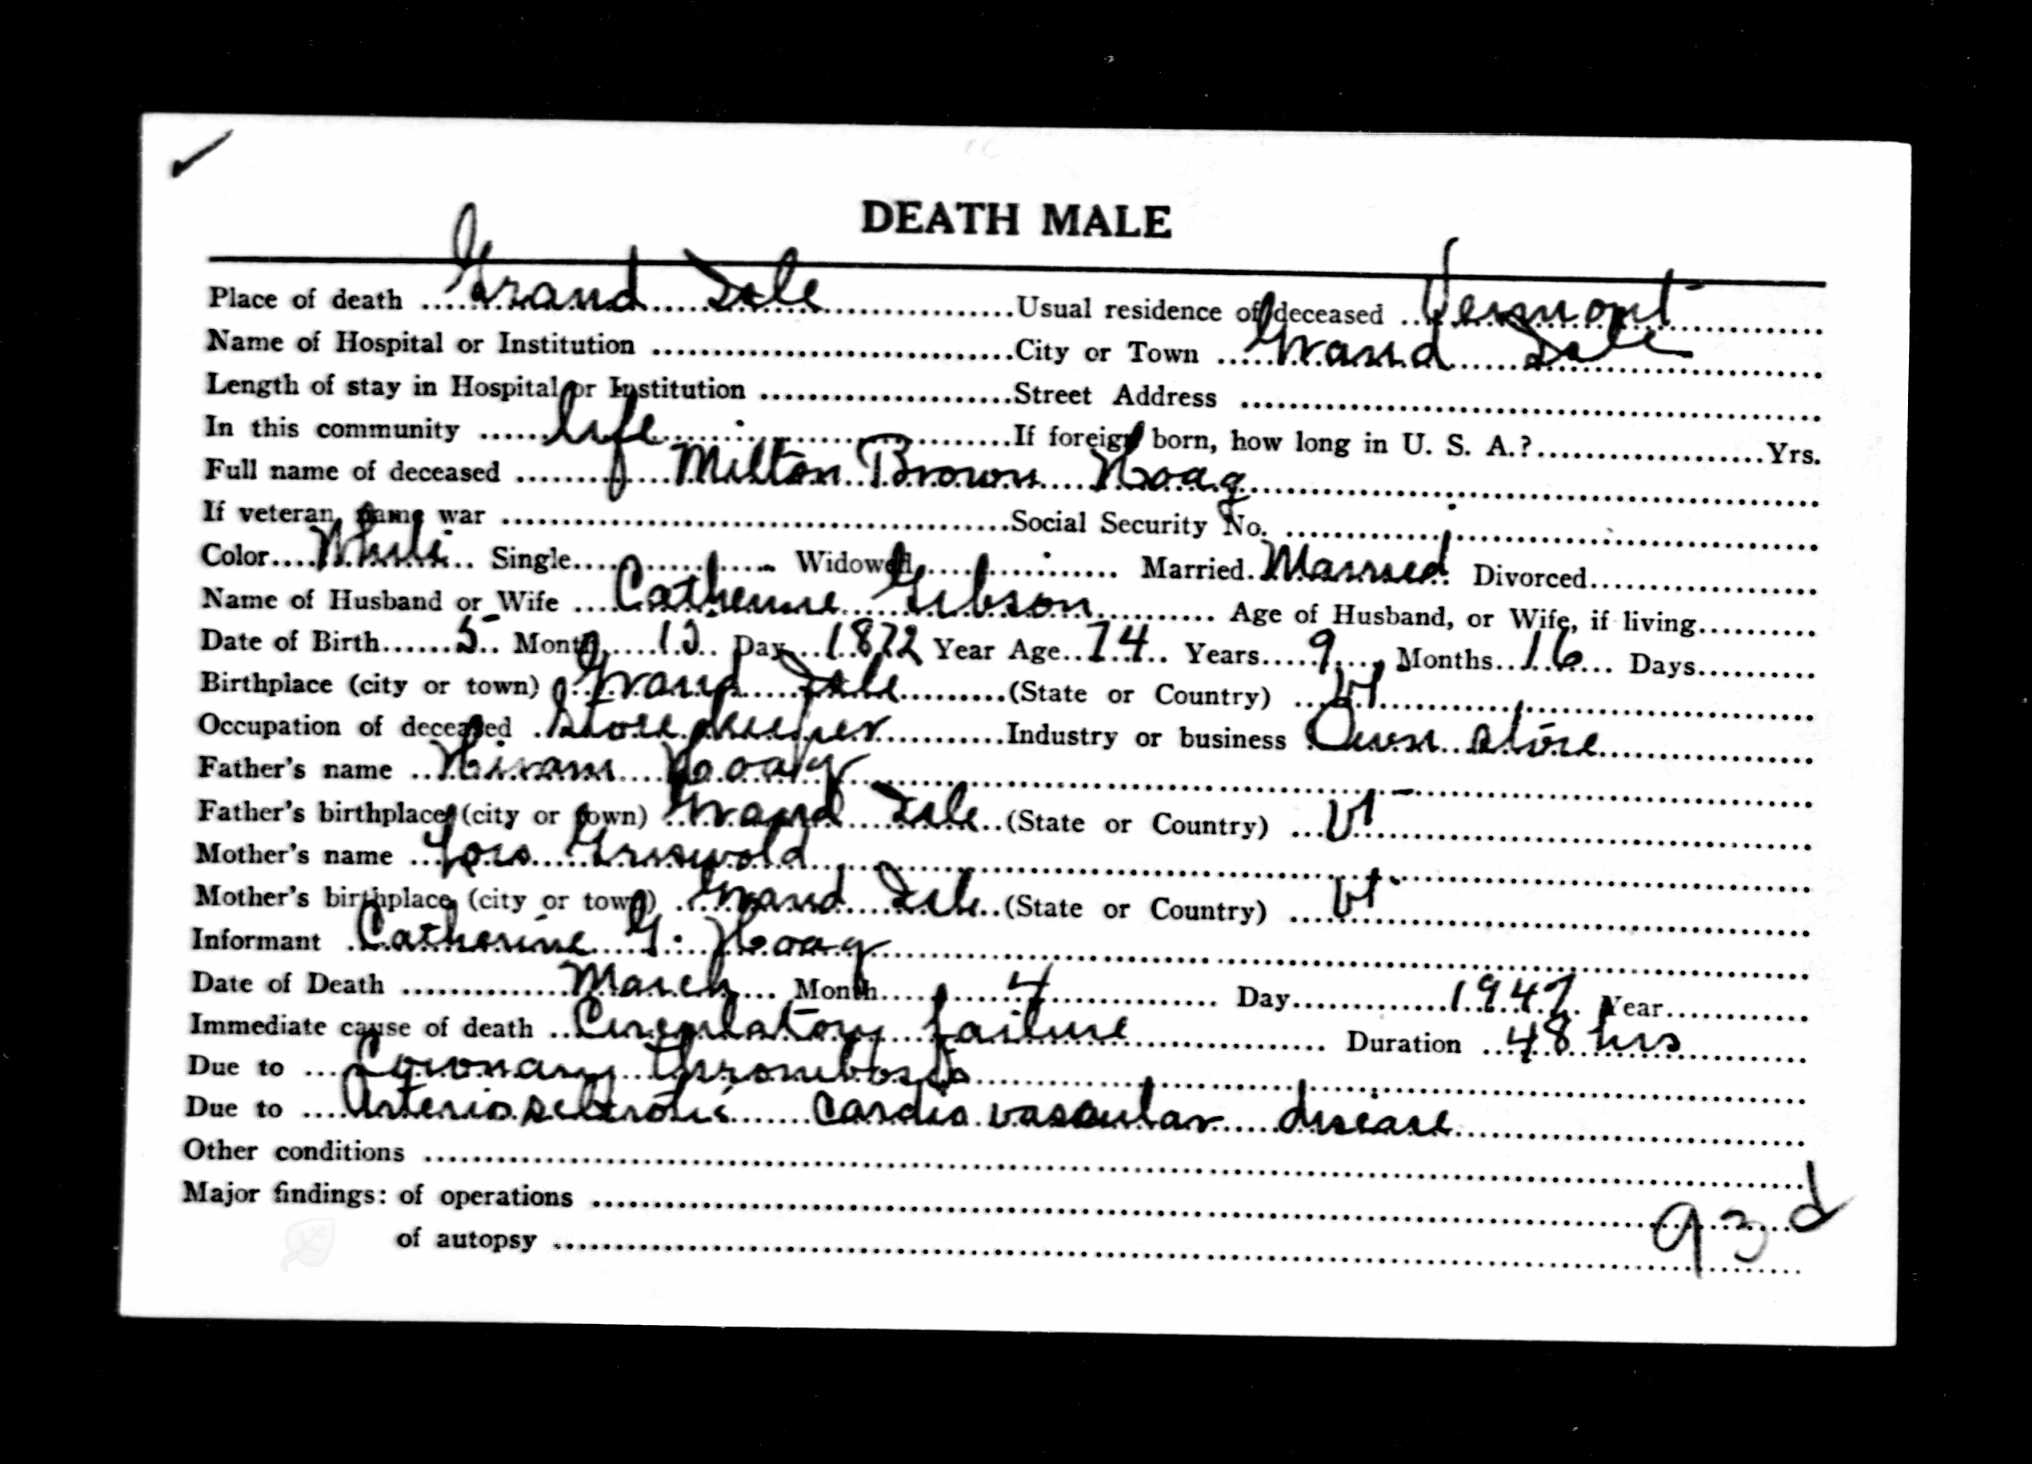 DEATH MALE
Place of death Grand Isle Usual residence of deceased Vermont
Name of Hospital or Institution City or Town Grand Isle
Length of stay in Hospital or Institution Street Address
In this community life If foreign born, how long in U. S. A.? Yrs.
Full name of deceased Milton Brown Hoag
If veteran, name war Social Security No.
Color White Single Widowed Married Married Divorced
Name of Husband or Wife Catherine Gibson Age of Husband, or Wife, if living
Date of Birth 5 Month Day 1872 Year Age 74 Years 9 Months 16 Days
Birthplace (city or town) Grand Isle (State or Country) Vt
Occupation of deceased Storekeeper Industry or business Own store
Father's name Hiram Hoag
Father's birthplace (city or town) Grand Isle (State or Country) Vt
Mother's name Lois Griswold
Mother's birthplace (city or town) Grand Isle (State or Country) Vt.
Informant Catherine G. Hoag
Date of Death March Month 4 Day 1947 Year
Immediate cause of death Circulatory failure Duration 48 hrs
Due to Coronary thrombosis
Due to Arteriosclerotic cardio vascular disease
Other conditions
Major findings: of operations
of autopsy 93 d